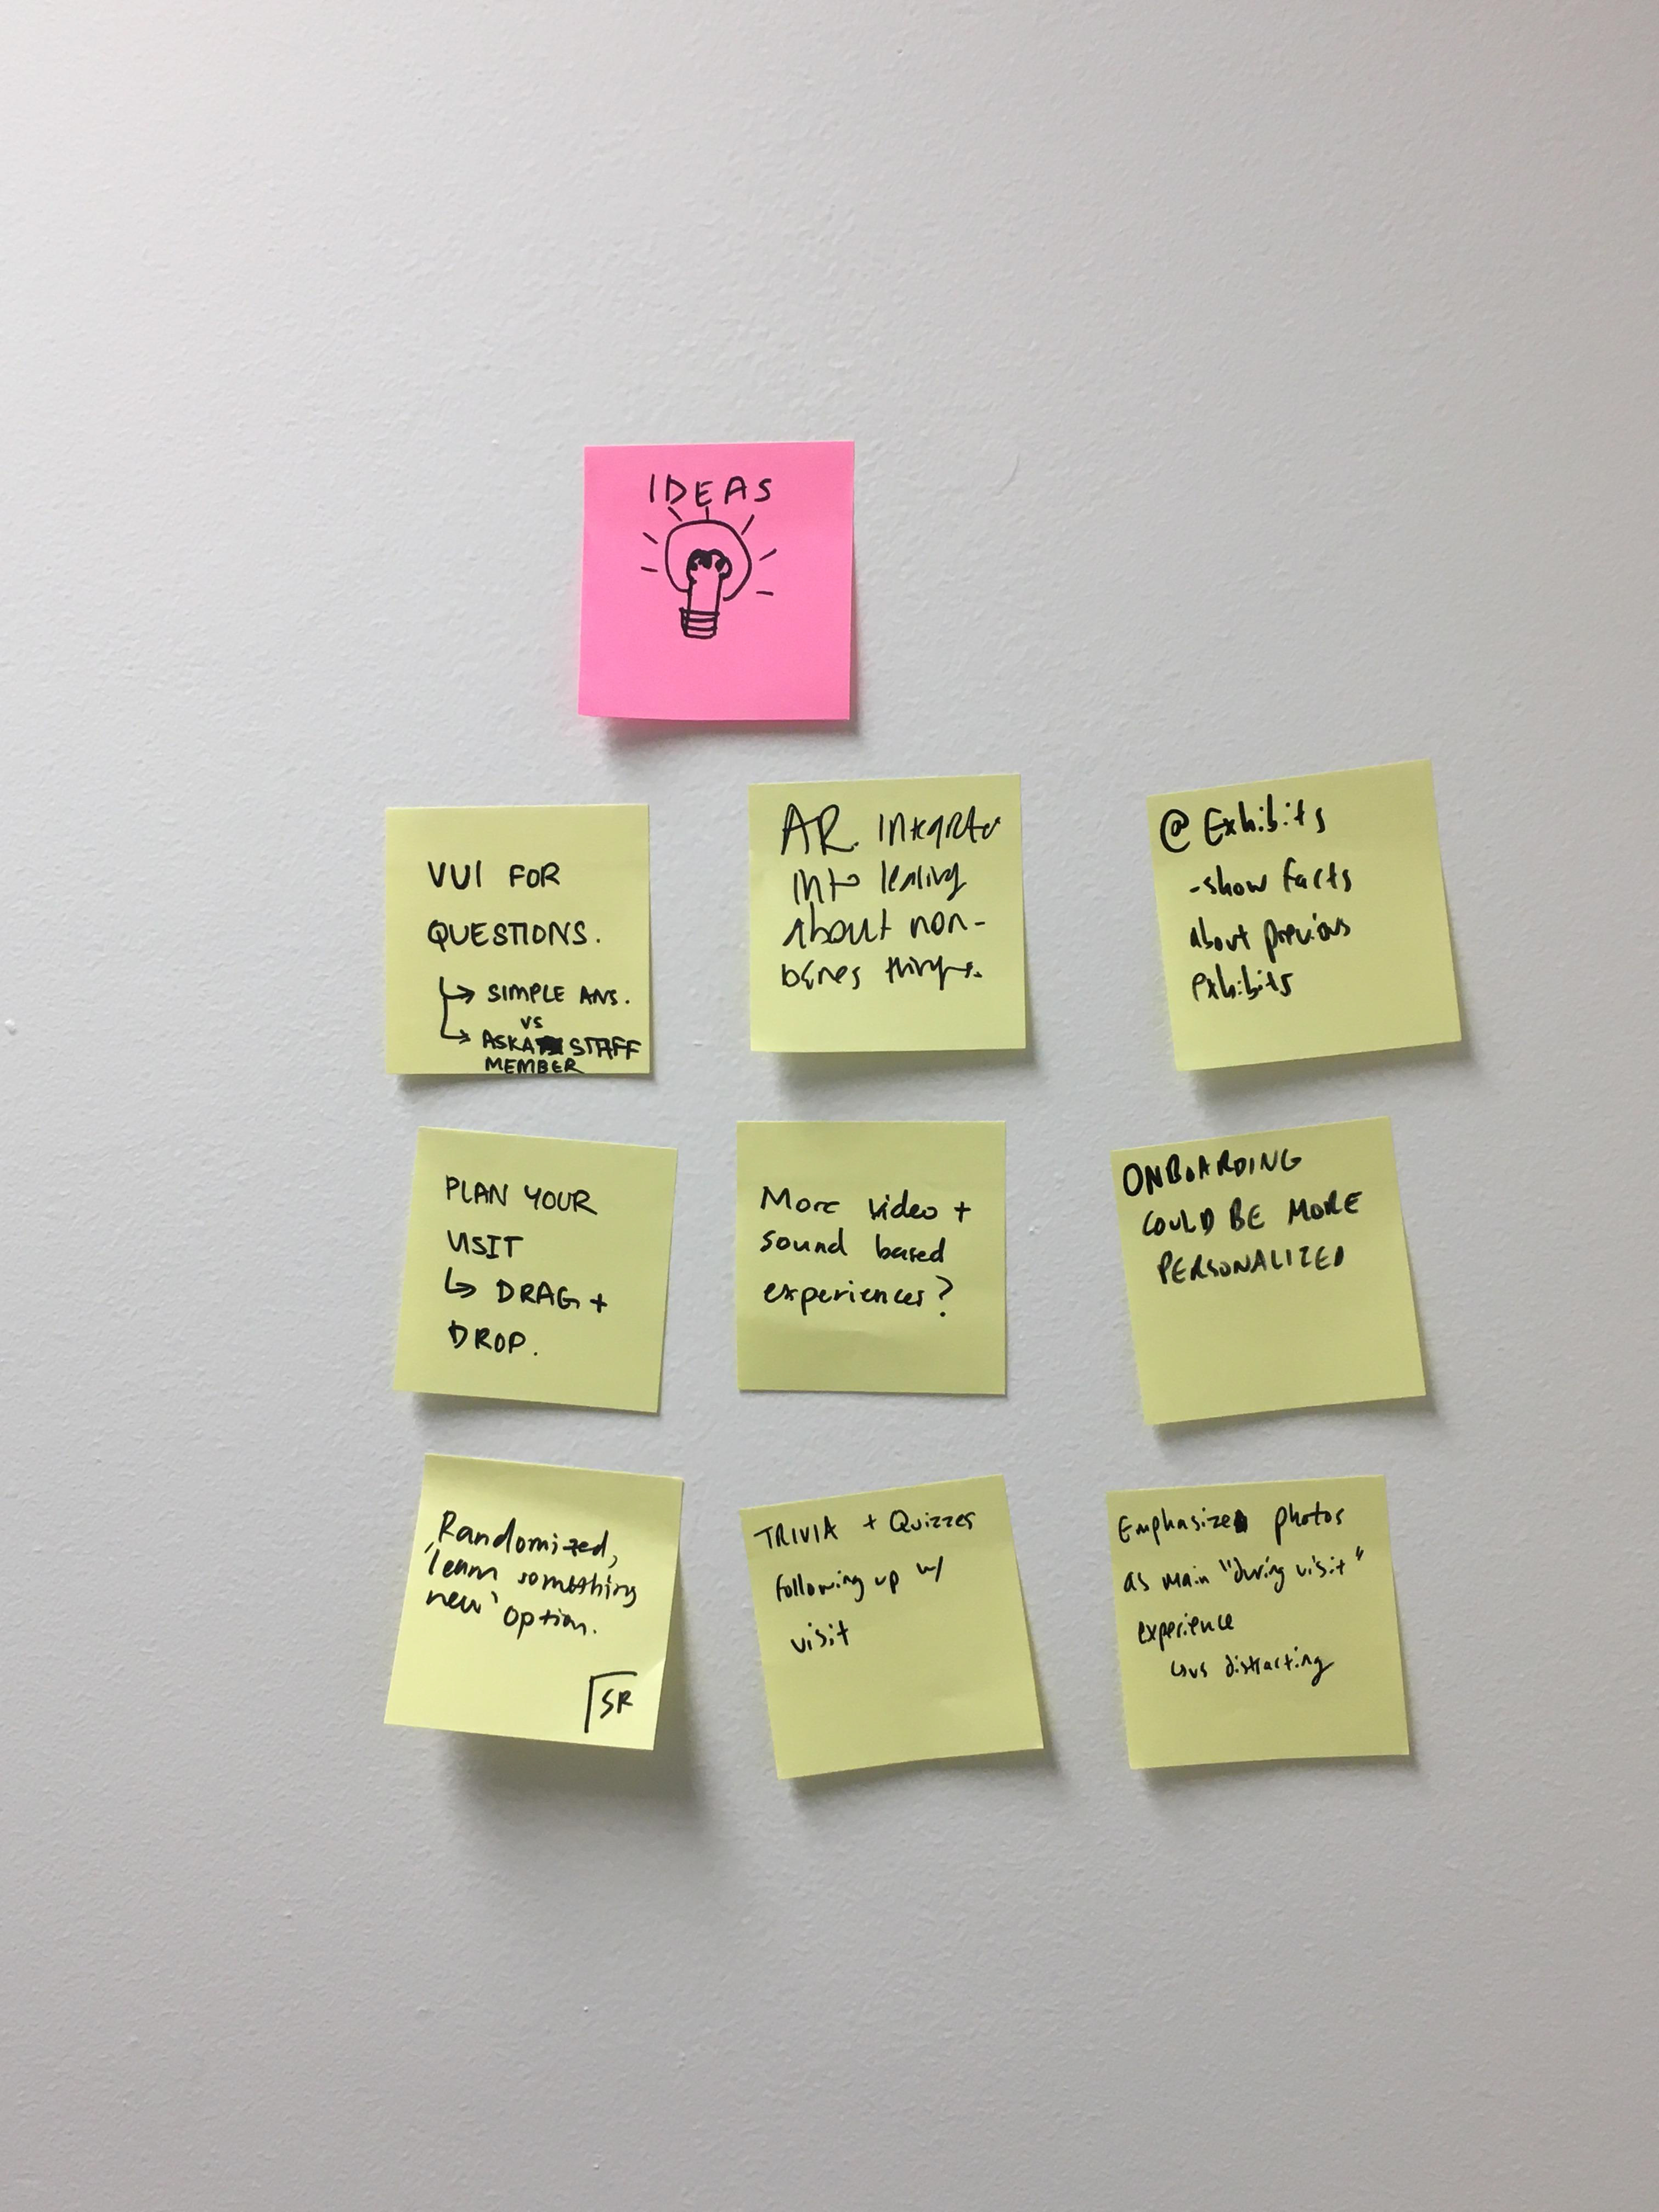 IDEAS
VUI FOR
QUESTIONS.
↳ SIMPLE ANS.
vs
↳ ASK A STAFF
MEMBER
AR. Integrate
into
about non-
things.
@ Exhibits
- show facts
about previous
exhibits
PLAN YOUR
VISIT
↳ DRAG +
DROP.
More video +
sound based
experiences?
ONBOARDING
COULD BE MORE
PERSONALIZED
Randomized,
'learn something
new' option.
SR
TRIVIA + Quizzes
following up w/
visit
Emphasize photos
as main "during visit"
experience
↳ vs distracting